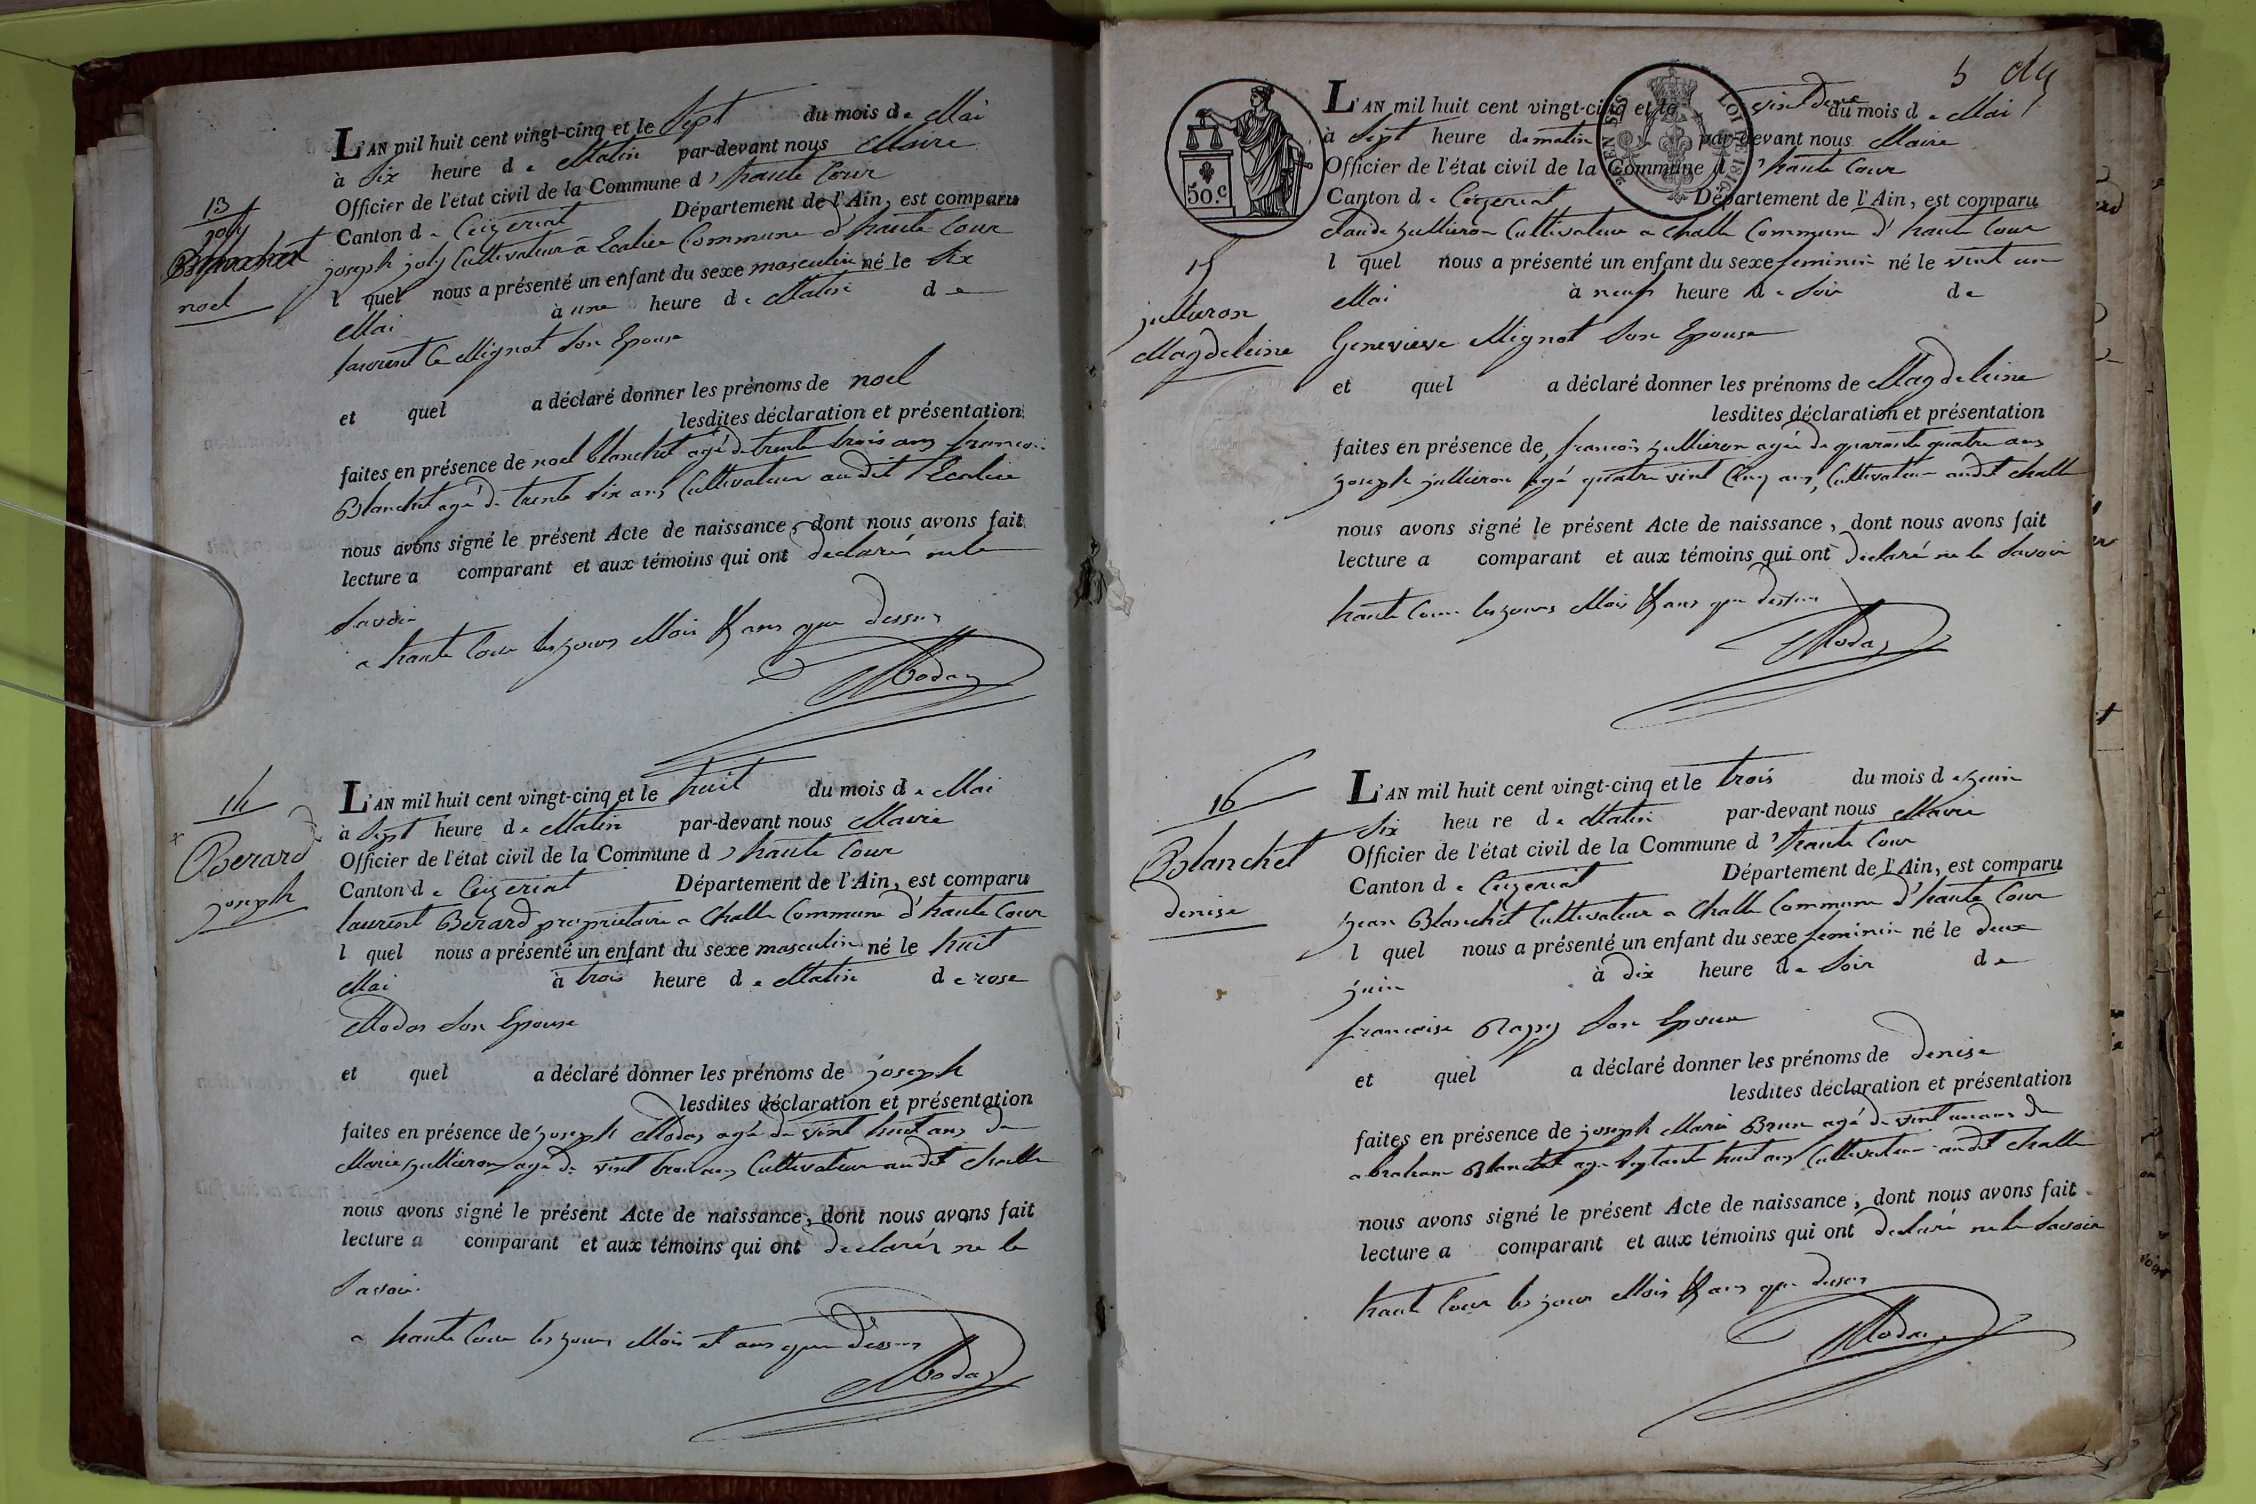 13
joly
Blanchet
noel
L'AN mil huit cent vingt-cinq et le Sept du mois de Mai
à Six heure de Matin par-devant nous Maire
Officier de l'état civil de la Commune d'haute Cour
Canton de Ceÿzeriat Département de l'Ain, est comparu
joseph joly Cultivateur a Commune d'haute Cour
l quel nous a présenté un enfant du sexe masculin né le Six
Mai à une heure de Matin de
Mignot Son Epouse
et quel a déclaré donner les prénoms de noel
lesdites déclaration et présentation
faites en présence de noel blanchet agé de trente trois ans francois
Blanchet agé de trente Six ans Cultivateur audit
nous avons signé le présent Acte de naissance, dont nous avons fait
lecture a comparant et aux témoins qui ont declarés ne le
Savoir
a haute Cour les jours Mois & ans que dessus
Modas
14
Berard
joseph
L'AN mil huit cent vingt-cinq et le huit du mois de Mai
à Sept heure de Matin par-devant nous Maire
Officier de l'état civil de la Commune d'haute Cour
Canton de Ceÿzeriat Département de l'Ain, est comparu
laurent Berard proprietaire a Challe Commune d'haute Cour
l quel nous a présenté un enfant du sexe masculin né le huit
Mai à trois heure de Matin de rose
Modas Son Epouse
et quel a déclaré donner les prénoms de joseph
lesdites déclaration et présentation
faites en présence de joseph Modas agé de vint huit ans de
Marie jullieron agé de vint trois ans Cultivateur audit Challe
nous avons signé le présent Acte de naissance, dont nous avons fait
lecture a comparant et aux témoins qui ont declarés ne le
Savoir
a haute Cour les jours Mois et ans que dessus
Modas
5
50.c
LOI DE 1816
15
jullieron
Magdeleine
L'AN mil huit cent vingt-cinq et le vint deux du mois de Mai
à Sept heure de matin par-devant nous Maire
Officier de l'état civil de la Commune d'haute Cour
Canton de Ceÿzeriat Département de l'Ain, est comparu
Claude jullieron Cultivateur a Challe Commune d'haute Cour
l quel nous a présenté un enfant du sexe feminin né le vint un
Mai à neuf heure de Soir de
Genevieve Mignot Son Epouse
et quel a déclaré donner les prénoms de Magdeleine
lesdites déclaration et présentation
faites en présence de francois jullieron agée de quarante quatre ans
joseph jullieron agé quatre vint Cinq ans, Cultivateur audit Challe
nous avons signé le présent Acte de naissance, dont nous avons fait
lecture a comparant et aux témoins qui ont declaré ne le Savoir
haute Cour les jours Mois & ans que dessus
Modas
16
Blanchet
denise
L'AN mil huit cent vingt-cinq et le trois du mois de juin
Six heure de Matin par-devant nous Maire
Officier de l'état civil de la Commune d'haute Cour
Canton de Ceÿzeriat Département de l'Ain, est comparu
jean Blanchet Cultivateur a Challe Commune d'haute Cour
l quel nous a présenté un enfant du sexe feminin né le deux
juin à dix heure de Soir de
francoise Son Epouse
et quel a déclaré donner les prénoms de denise
lesdites déclaration et présentation
faites en présence de joseph Marie Brun agé de vint un ans de
abraham Blanchet age Septante huit ans Cultivateur audit Challe
nous avons signé le présent Acte de naissance, dont nous avons fait
lecture a comparant et aux témoins qui ont declaré ne le Savoir
haute Cour les jour Mois & ans que dessus
Modas